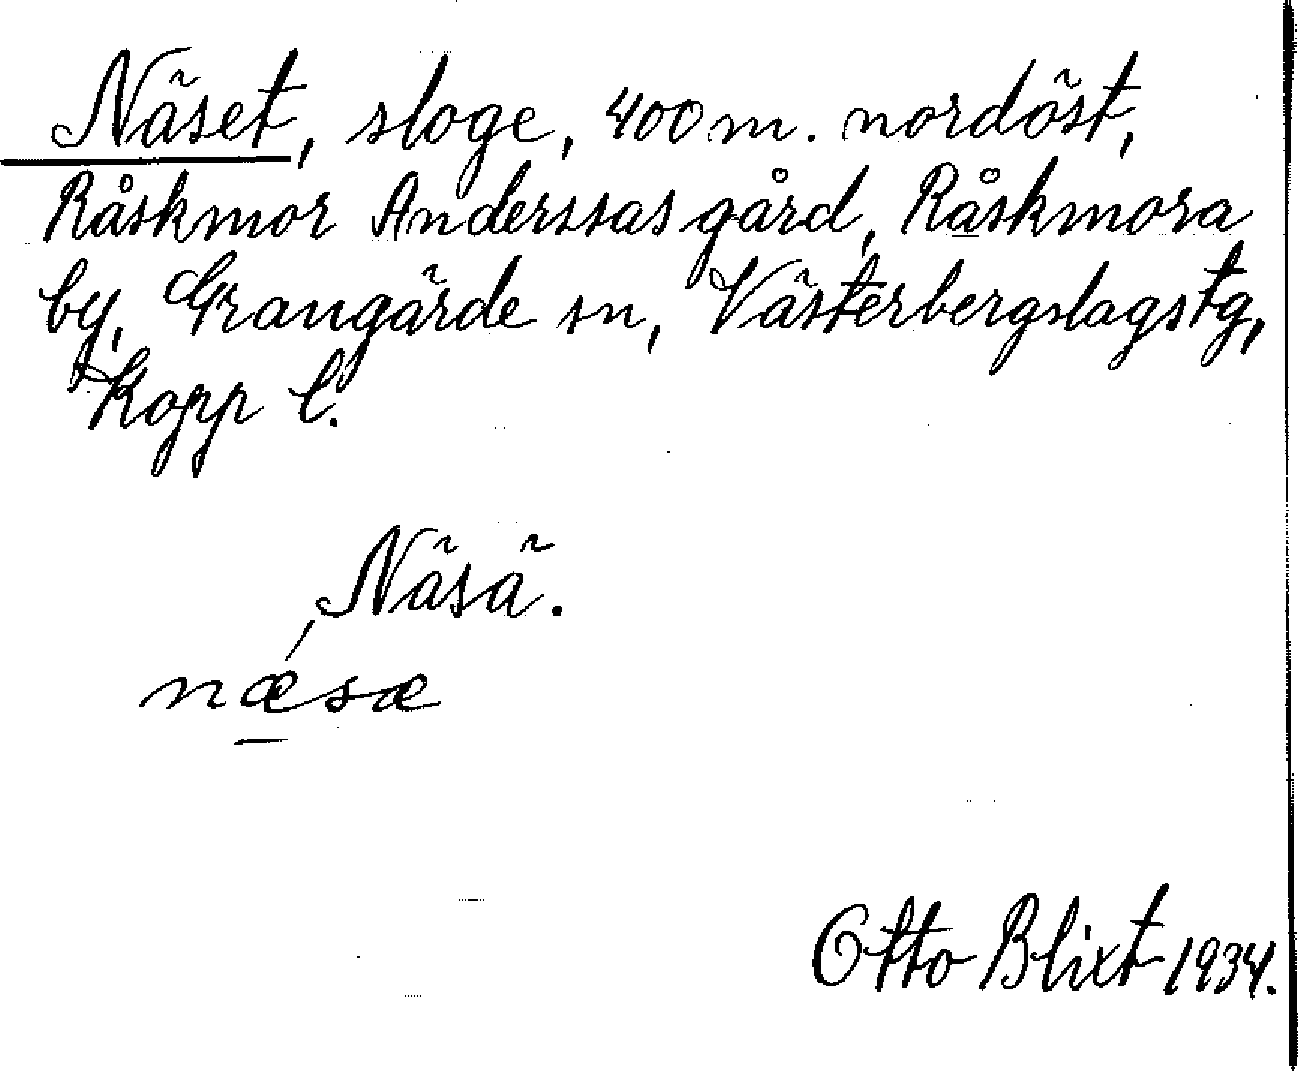 Näset, sloge, 400 m. nordöst,
Råskmor Anderssas gård, Råskmora
by, Grangärde sn, Västerbergslagstg,
Kopp l.
Näsä.
næsæ
Otto Blixt 1934.